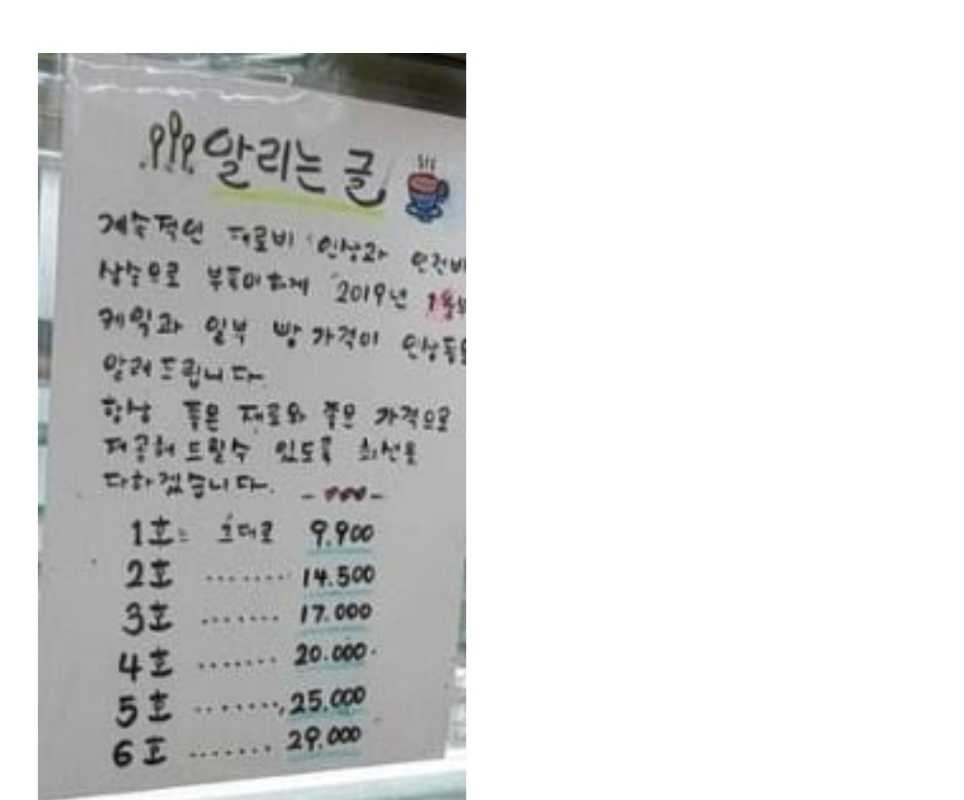 알리는 글
계속적인 재료비 인상과 인건비
상승으로 부득이하게 2019년 1월부
케익과 일부 빵 가격이 인상됨을
알려드립니다.
항상 좋은 재료와 좋은 가격으로
제공해 드릴수 있도록 최선을
다하겠습니다.
1호 : 그대로 9.900
2호 ........ 14.500
3호 ....... 17.000
4호 ....... 20.000.
5호 ........ 25.000
6호 ....... 29.000